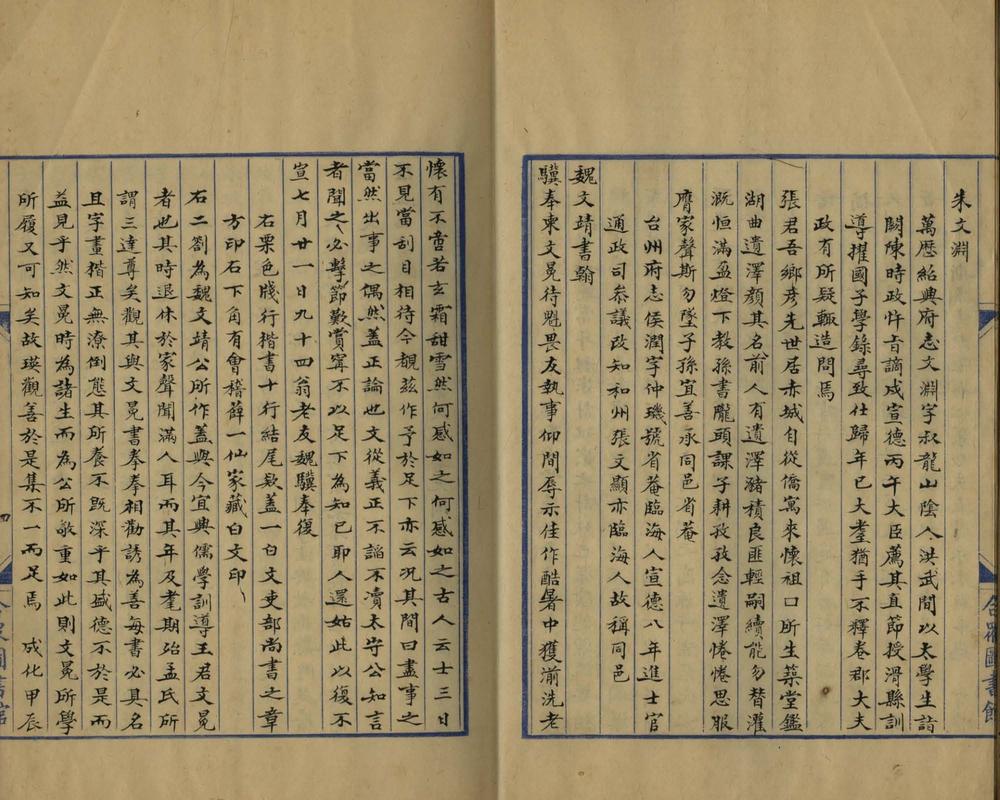 朱文淵
萬歷紹興府志文淵字叔龍山陰人洪武間以太學生詣
闕陳時政忤旨謫戍宣德丙午大臣薦其直節授滑縣訓
導擢國子學錄尋致仕歸年已大耋猶手不釋卷郡大夫
政有所疑輙造問焉
張君吾鄉彦先世居赤城自從僑寓來懷祖口所生築堂鑑
湖曲遺澤顔其名前人有遺澤潴積良匪輕嗣續能勿替濯
溉恒滿盈燈下教孫書隴頭課子耕孜孜念遺澤惓惓思服
膺家聲斯勿墜子孫宜善承同邑省菴
台州府志侯潤字仲璣號省菴臨海人宣德八年進士官
通政司叅議改知和州張文顯亦臨海人故稱同邑
魏文靖書翰
驥奉柬文冕待魁畏友執事仰間辱示佳作酷暑中獲湔洗老
懷有不啻若玄霜甜雪然何感如之何感如之古人云士三日
不見當刮目相待今覩兹作予於足下亦云况其間曰盡事之
當然出事之偶然盖正論也文從義正不謟不瀆太守公知言
者聞之必擊節歎賞寜不以足下為知已耶人還姑此以復不
宣七月廿一日九十四翁老友魏驥奉復
右栗色牋行楷書十行結尾欵盖一白文吏部尚書之章
方印石下角有會稽薛一仙家藏白文印
右二劄為魏文靖公所作盖與今宜興儒學訓導王君文冕
者也其時退休於家聲聞滿人耳而其年及耄期殆孟氏所
謂三達尊矣觀其與文冕書拳拳相勸誘為善每書必具名
且字畫楷正無潦倒態其所養不既深乎其盛德不於是而
益見乎然文冕時為諸生而為公所敬重如此則文冕所學
所履又可知矣故瑛觀善於是集不一而足焉　成化甲辰